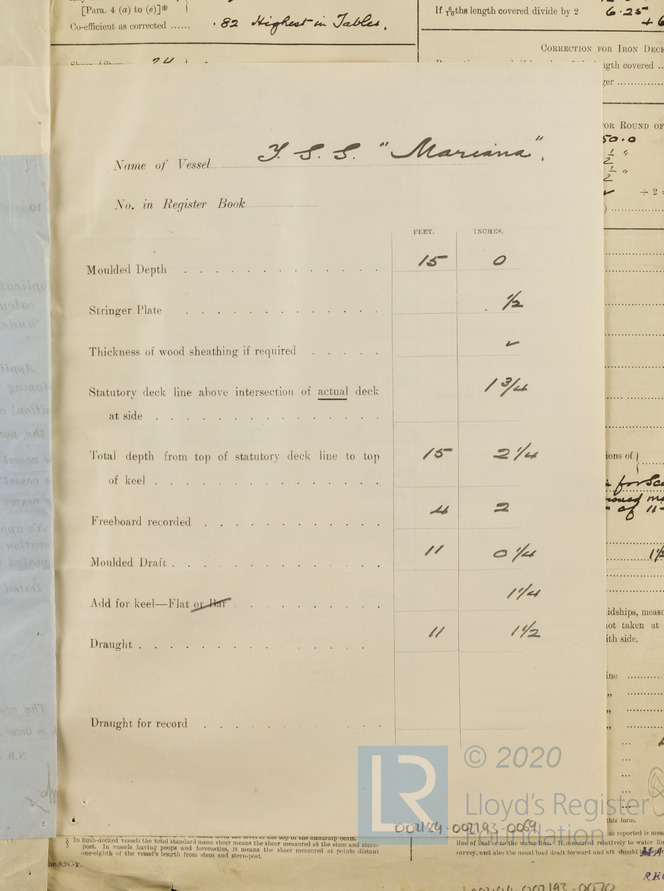 [Para. 4 (a) to (e)]*
Co-efficient as corrected ...... .82 Highest in Tables.
If 6/10ths length covered divide by 2 6.25
CORRECTION FOR IRON DECK
length covered ..
FOR ROUND OF
50.0
÷ 2
Name of Vessel T. S. S. "Mariana".
No. in Register Book
FEET. INCHES.
Moulded Depth 15 0
Stringer Plate 1/2
Thickness of wood sheathing if required ✓
Statutory deck line above intersection of actual deck 1 3/4
at side
Total depth from top of statutory deck line to top 15 2 1/4
of keel
Freeboard recorded 4 2
Moulded Draft 11 0 1/4
Add for keel—Flat or Bar 1 1/4
Draught 11 1 1/2
Draught for record
idships, meas
not taken at
ith side.
© 2020
LR
Lloyd's Register
Foundation
002164-002193-0069
this form.
§ In flush-decked vessels the total standard mean sheer means the sheer measured at the stem and stern-
post. In vessels having poops and forecastles, it means the sheer measured at points distant
one-eighth of the vessel's length from stem and stern-post.
survey, and also the usual load draft forward and aft should